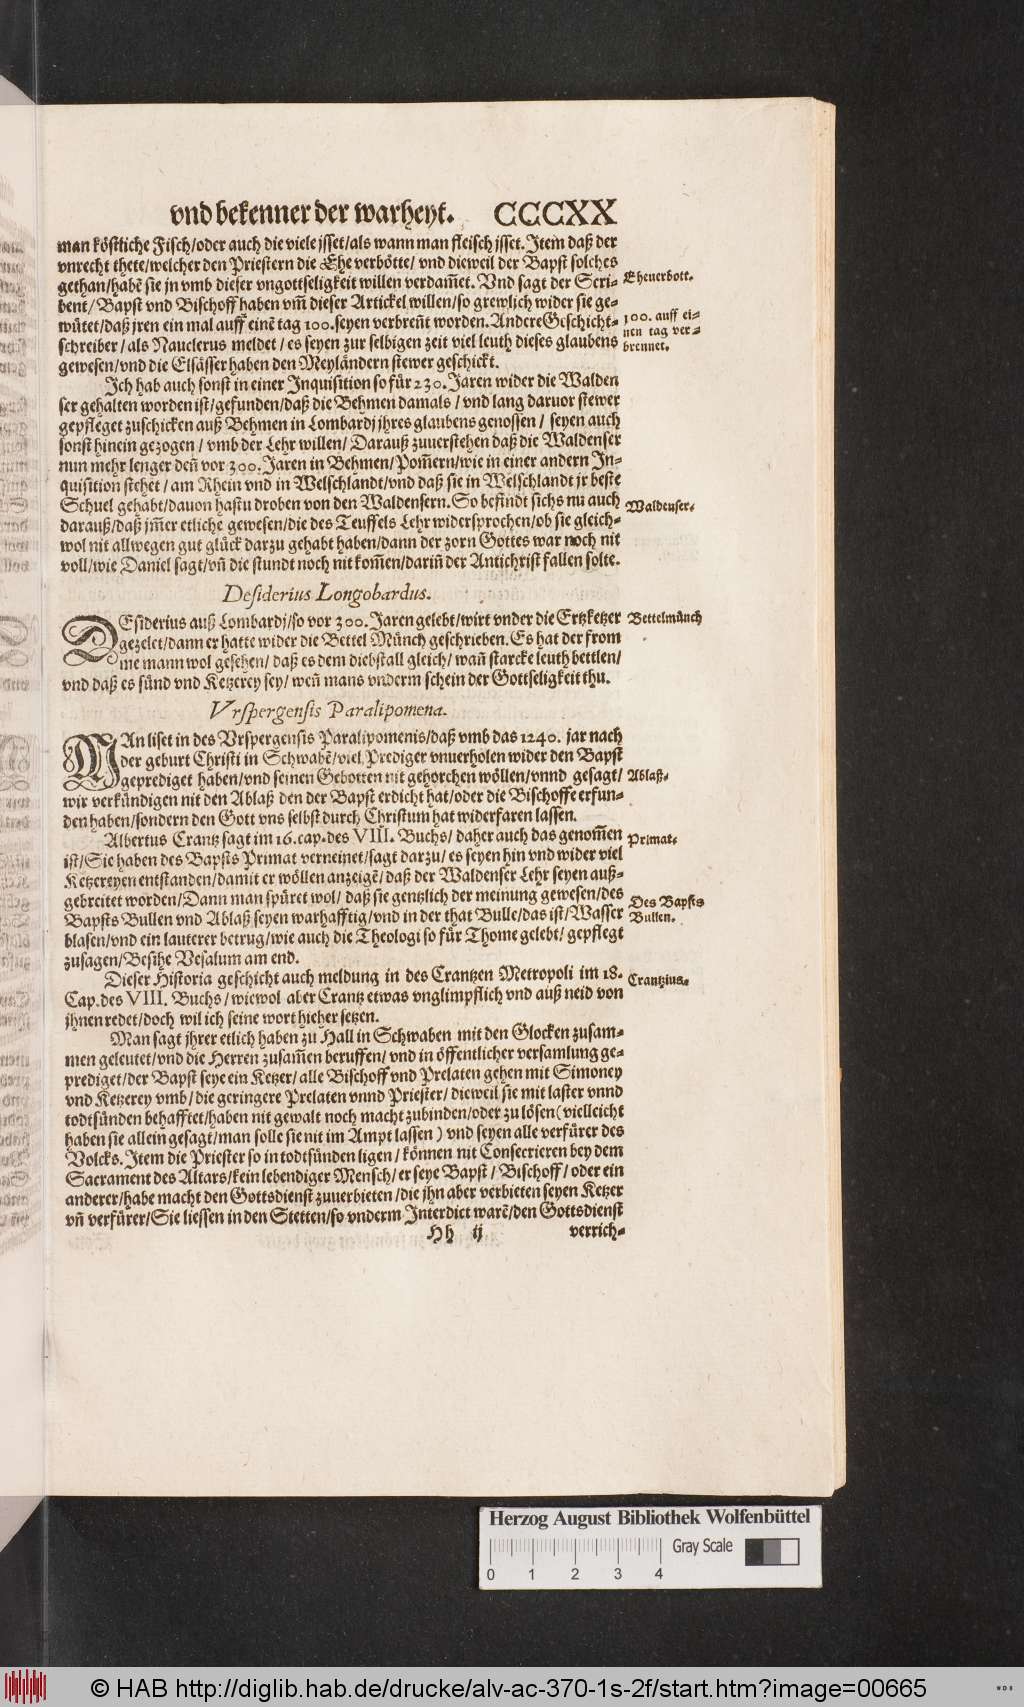 vnd bekenner der warheyt. CCCXX
man köstliche Fisch/oder auch die viele jsset/als wann man fleisch jsset. Item daß der
vnrecht thete/welcher den Priestern die Ehe verbötte/ vnd dieweil der Bapst solches
gethan/habē sie jn vmb dieser vngottseligkeit willen verdam̃et. Vnd sagt der Scri-
bent/ Bapst vnd Bischoff haben vm̃ dieser Artickel willen/so grewlich wider sie ge-
wütet/daß jren ein mal auff einē tag 100.seyen verbreñt worden. Andere Geschicht-
schreiber/ als Nauclerus meldet/ es seyen zur selbigen zeit viel leuth dieses glaubens
gewesen/vnd die Elsässer haben den Meyländern stewer geschickt.
Eheuerbott.
100. auff ei-
nen tag ver-
brennet.
Ich hab auch sonst in einer Inquisition so für 230. Jaren wider die Walden
ser gehalten worden ist/gefunden/daß die Behmen damals / vnd lang daruor stewer
gepfleget zuschicken auß Behmen in Lombardj jhres glaubens genossen/ seyen auch
sonst hinein gezogen / vmb der Lehr willen/ Darauß zuuerstehen daß die Waldenser
nun mehr lenger deñ vor 300. Jaren in Behmen/ Pom̃ern/wie in einer andern In-
quisition stehet/ am Rhein vnd in Welschlandt/vnd daß sie in Welschlandt jr beste
Schuel gehabt/dauon hastu droben von den Waldensern. So befindt sichs nu auch
darauß/daß jm̃er etliche gewesen/die des Teuffels Lehr widersprochen/ob sie gleich-
wol nit allwegen gut glück darzu gehabt haben/dann der zorn Gottes war noch nit
voll/wie Daniel sagt/vñ die stundt noch nit kom̃en/dariñ der Antichrist fallen solte.
Waldenser.
Desiderius Longobardus.
DEsiderius auß Lombardj/so vor 300. Jaren gelebt/wirt vnder die Ertzketzer
gezelet/dann er hatte wider die Bettel Münch geschrieben. Es hat der from
me mann wol gesehen/ daß es dem diebstall gleich/ wañ starcke leuth bettlen/
vnd daß es sünd vnd Ketzerey sey/ weñ mans vnderm schein der Gottseligkeit thu.
Bettelmünch
Vrspergensis Paralipomena.
MAn liset in des Vrspergensis Paralipomenis/daß vmb das 1240. jar nach
der geburt Christi in Schwabē/viel Prediger vnuerholen wider den Bapst
geprediget haben/vnd seinen Gebotten nit gehorchen wöllen/vnnd gesagt/
wir verkündigen nit den Ablaß den der Bapst erdicht hat/oder die Bischoffe erfun-
den haben/sondern den Gott vns selbst durch Christum hat widerfaren lassen.
Ablaß.
Albertus Crantz sagt im 16.cap.des VIII. Buchs/ daher auch das genom̃en
ist/Sie haben des Bapsts Primat verneinet/sagt darzu/ es seyen hin vnd wider viel
Ketzereyen entstanden/damit er wöllen anzeigē/ daß der Waldenser Lehr seyen auß-
gebreitet worden/Dann man spüret wol/ daß sie gentzlich der meinung gewesen/des
Bapsts Bullen vnd Ablaß seyen warhafftig/vnd in der that Bulle/das ist/Wasser
blasen/vnd ein lauterer betrug/wie auch die Theologi so für Thome gelebt/ gepflegt
zusagen/Besihe Vesalum am end.
Primat.
Des Bapsts
Bullen.
Dieser Historia geschicht auch meldung in des Crantzen Metropoli im 18.
Cap.des VIII. Buchs/wiewol aber Crantz etwas vnglimpflich vnd auß neid von
jhnen redet/doch wil ich seine wort hieher setzen.
Crantzius.
Man sagt jhrer etlich haben zu Hall in Schwaben mit den Glocken zusam-
men geleutet/vnd die Herren zusam̃en beruffen/ vnd in öffentlicher versamlung ge-
prediget/der Bapst seye ein Ketzer/alle Bischoff vnd Prelaten gehen mit Simoney
vnd Ketzerey vmb/ die geringere Prelaten vnnd Priester/ dieweil sie mit laster vnnd
todtsünden behafftet/haben nit gewalt noch macht zubinden/oder zu lösen(vielleicht
haben sie allein gesagt/man solle sie nit im Ampt lassen) vnd seyen alle verfürer des
Volcks. Item die Priester so in todtsünden ligen/ können nit Consecrieren bey dem
Sacrament des Altars/kein lebendiger Mensch/er seye Bapst/ Bischoff/ oder ein
anderer/habe macht den Gottsdienst zuuerbieten/die jhn aber verbieten seyen Ketzer
vñ verfürer/Sie liessen in den Stetten/so vnderm Interdict warē/den Gottsdienst
Hh ij verrich-
Herzog August Bibliothek Wolfenbüttel
Gray Scale
0 1 2 3 4
© HAB http://diglib.hab.de/drucke/alv-ac-370-1s-2f/start.htm?image=00665